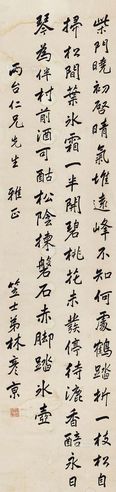 柴門曉初啟晴氣堆遠峰不知何處鶴踏折一枝松自
掃松間葉冰霜一半開碧桃花未發停待漉香醅永日
琴為伴村前酒可酤松陰揀磐石赤脚踏冰壺
雨台仁兄先生 雅正
竺士弟林彥京